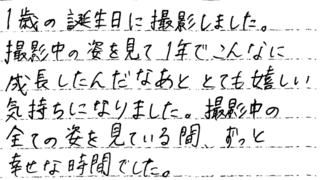 1歳の誕生日に撮影しました。
撮影中の姿を見て1年でこんなに
成長したんだなあと とても嬉しい
気持ちになりました。撮影中の
全ての姿を見ている間、ずっと
幸せな時間でした。